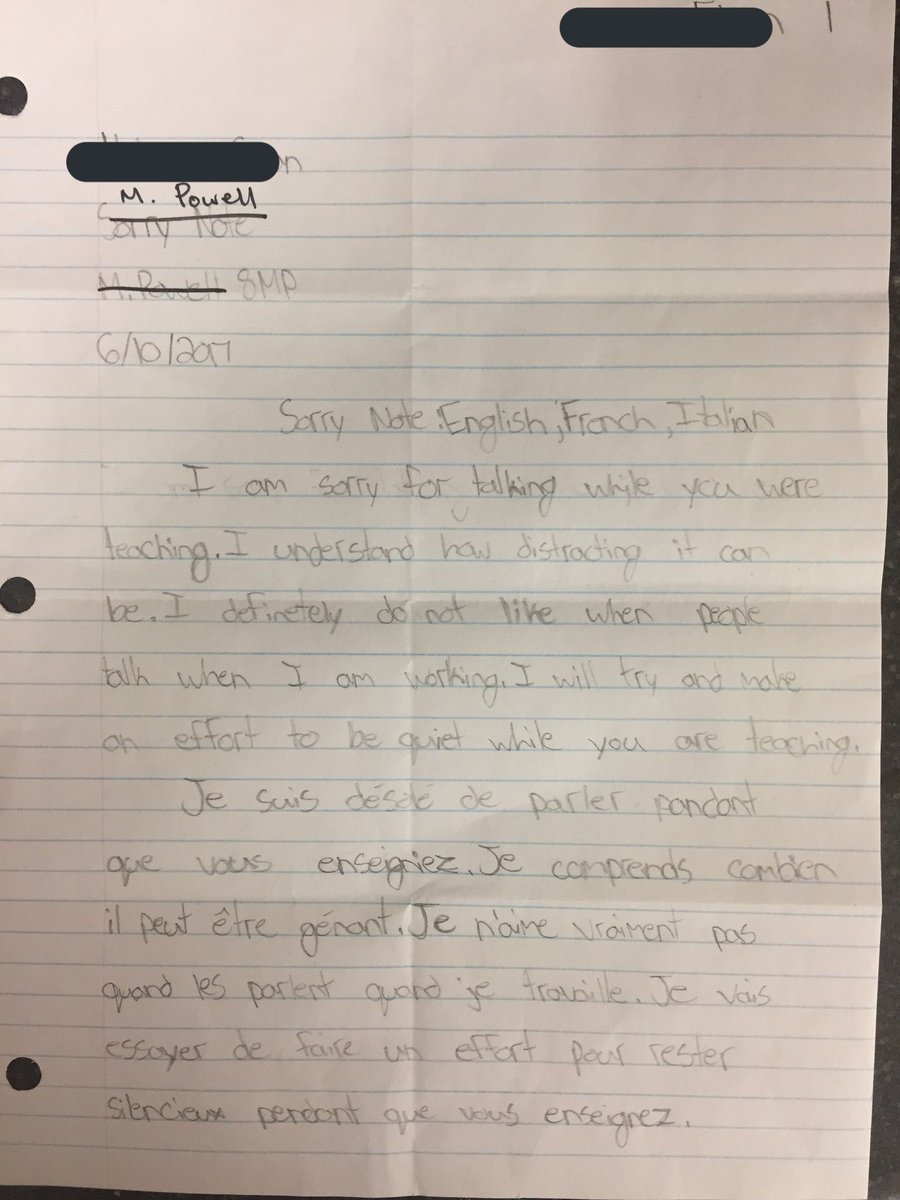 1
M. Powell
Sorry Note
M.Powell 8MP
6/10/2017
Sorry Note:English,French,Italian
I am sorry for talking while you were
teaching. I understand how distracting it can
be. I definetely do not like when people
talk when I am working. I will try and make
an effort to be quiet while you are teaching.
Je suis désolé de parler pendant
que vous enseigniez. Je comprends combien
il peut être génant. Je n'aime vraiment pas
quand les parlent quand je travaille. Je vais
essayer de faire un effort pour rester
silencieux pendant que vous enseignez.